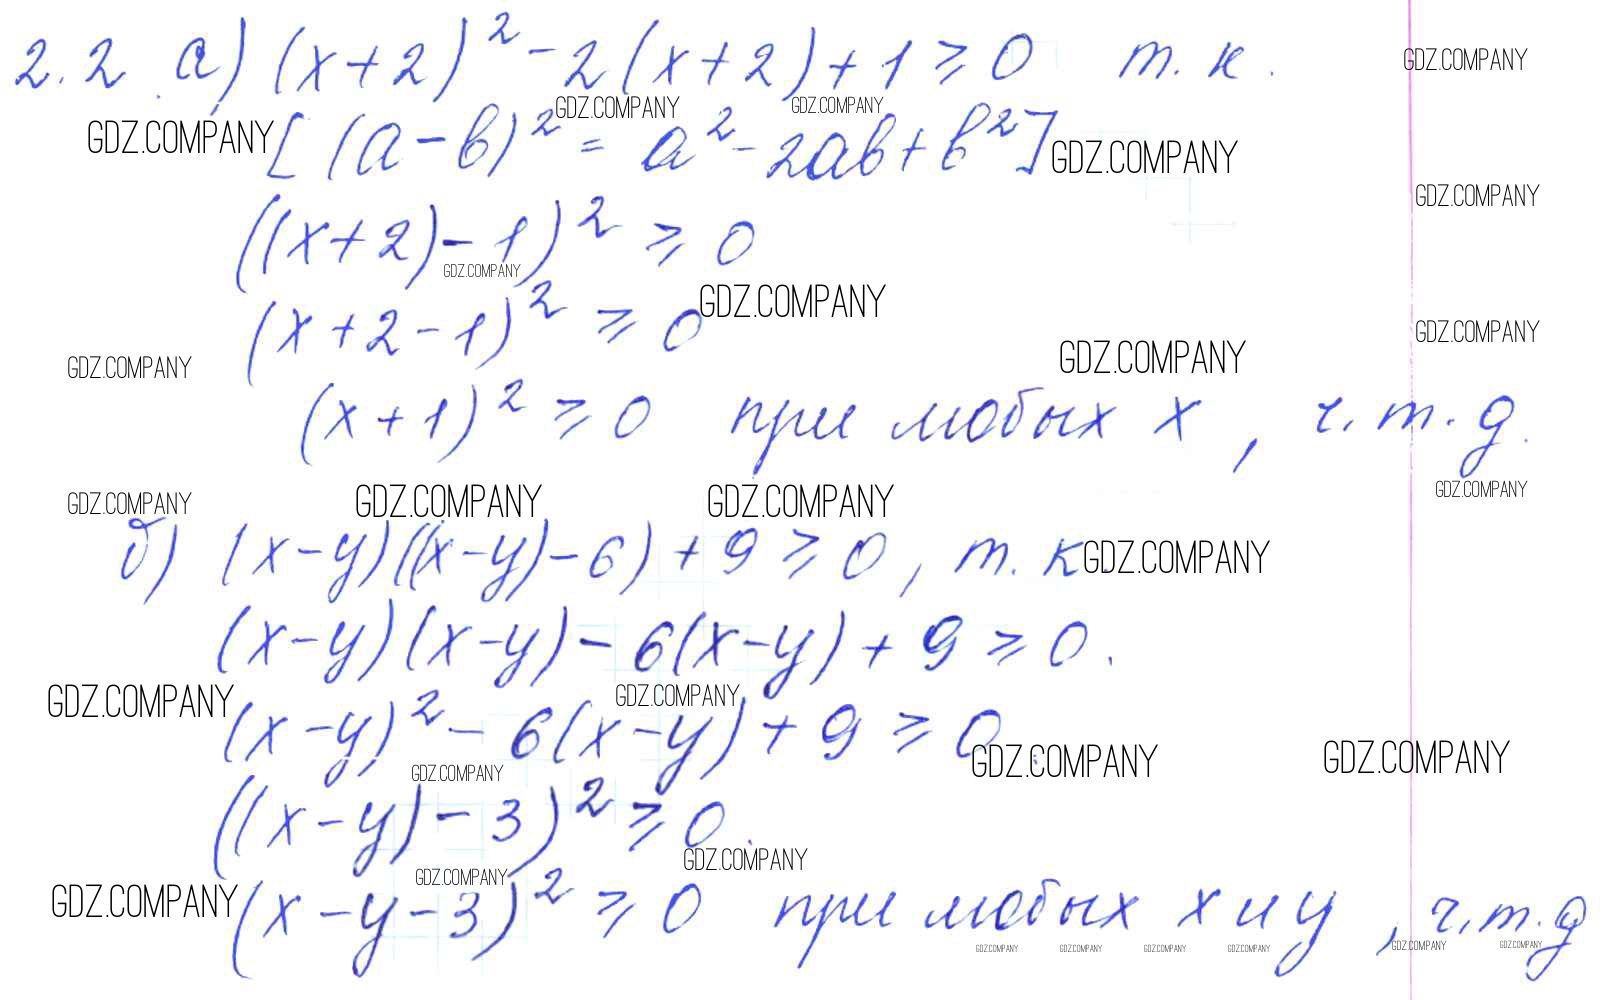 2.2 а) (x+2)² - 2(x+2) + 1 ≥ 0 т. к.
GDZ.COMPANY
GDZ.COMPANY GDZ.COMPANY
GDZ.COMPANY [(a-b)² = a² - 2ab + b²] GDZ.COMPANY
GDZ.COMPANY
((x+2) - 1)² ≥ 0
GDZ.COMPANY
(x+2-1)² ≥ 0 GDZ.COMPANY
GDZ.COMPANY
GDZ.COMPANY GDZ.COMPANY
(x+1)² ≥ 0 при любых x, ч.т.д.
GDZ.COMPANY GDZ.COMPANY GDZ.COMPANY GDZ.COMPANY
б) (x-y)((x-y)-6) + 9 ≥ 0, т. к GDZ.COMPANY
(x-y)(x-y) - 6(x-y) + 9 ≥ 0.
GDZ.COMPANY GDZ.COMPANY
(x-y)² - 6(x-y) + 9 ≥ 0
GDZ.COMPANY GDZ.COMPANY GDZ.COMPANY
((x-y) - 3)² ≥ 0.
GDZ.COMPANY
GDZ.COMPANY GDZ.COMPANY
(x-y-3)² ≥ 0 при любых x и y, ч.т.д
GDZ.COMPANY GDZ.COMPANY GDZ.COMPANY GDZ.COMPANY GDZ.COMPANY GDZ.COMPANY